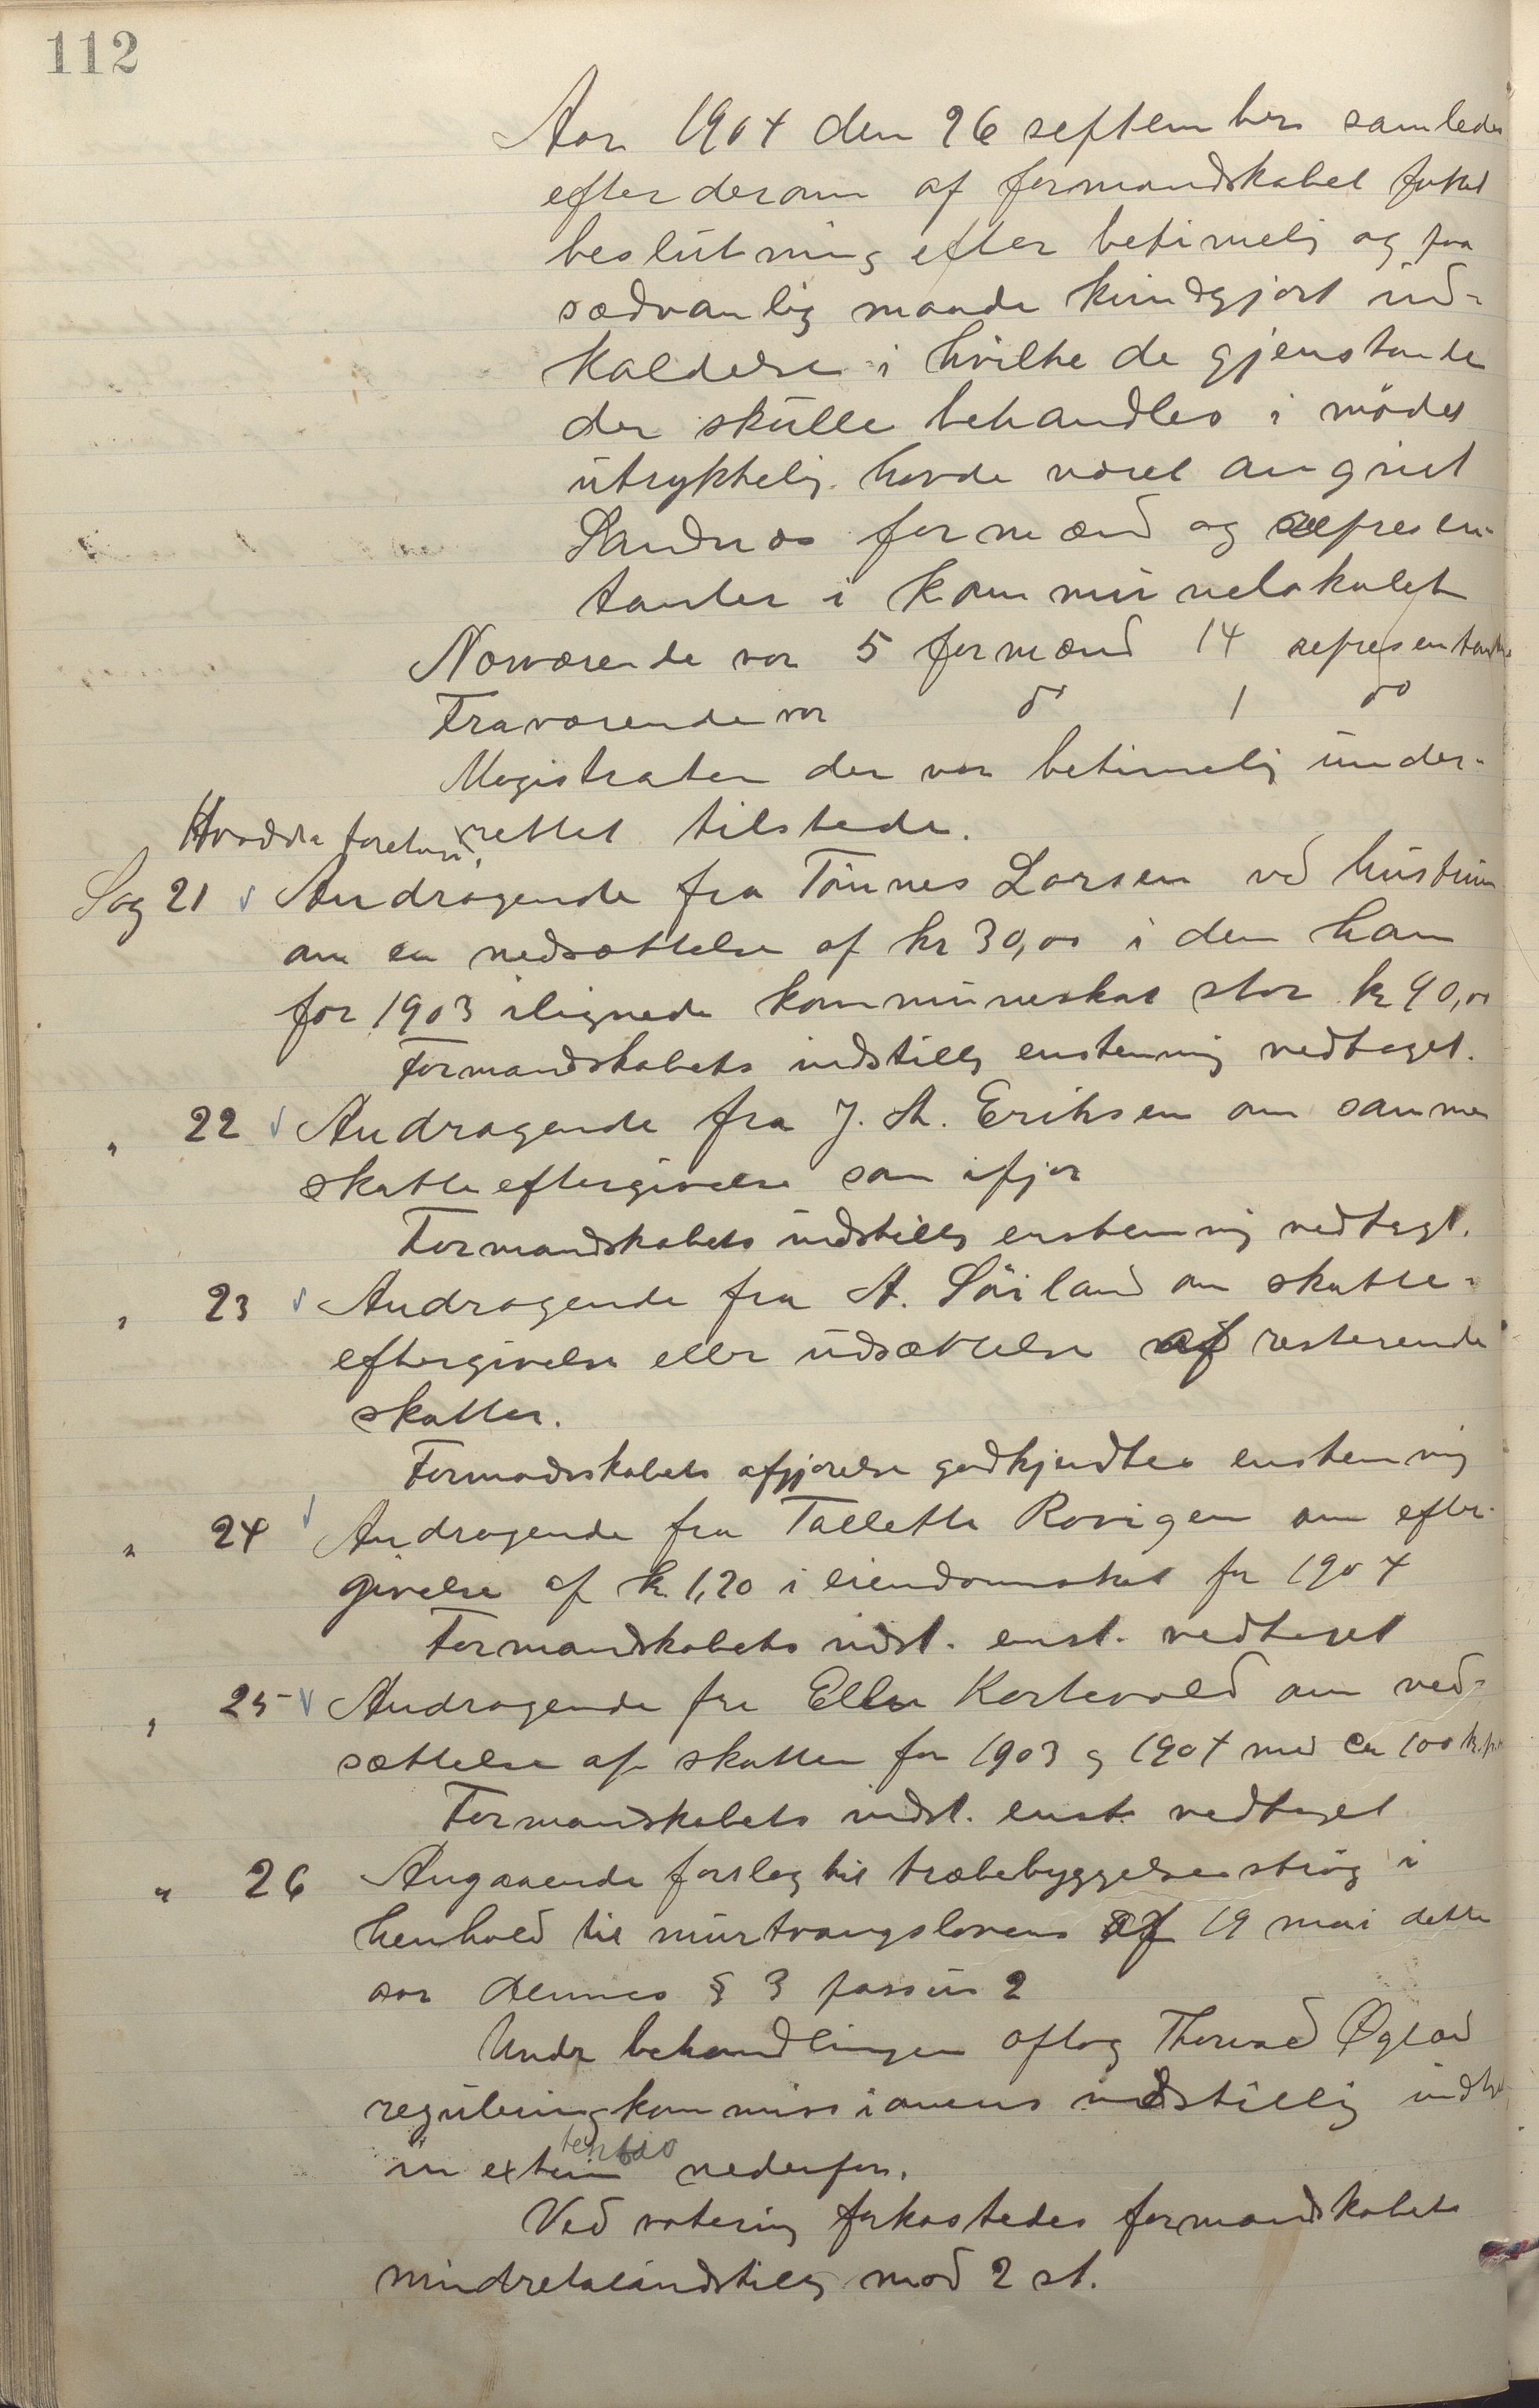 112
Aar 1904 den 26 september samledes
efter derom af formandskabet fattet
beslutning efter betimelig og paa
sædvanlig maade kundgjort ind-
kaldelse i hvilke de gjenstande
der skulle behandles i mødet
utrykkelig havde været angivet
Sandnæs formænd og represen-
tanter i kommunelokalet
Nærværende var 5 formænd 14 representanter
Fraværende var do 1 do
Magistraten der var betimelig under-
rettet tilstede.
Hvorda foretoges
Sag 21 Andragende fra Tönnes Larsen ved hustru
om en nedsættelse af kr 30,00 i den ham
for 1903 ilignede kommuneskat stor kr 90,00
Formandskabets indstillg enstemmig vedtaget.
" 22 Andragende fra J. A. Eriksen om samme
skatteeftergivelse som ifjor
Formandskabets indstillg enstemmig vedtagt.
" 23 Andragende fra A. Söiland om skatte-
eftergivelse eller udsættelse af resterende
skatter.
Formadsskabets afgjørelse godkjendtes enstemmig
" 24 Andragende fra Tallette Rovigen om efter-
givelse af kr 1,20 i eiendomsskat for 1904
Formandskabets indst. enst. vedtaget
" 25 Andragende fra Ellen Kortevold om ned-
sættelse af skatten for 1903 g 1904 med ca 100 kr.
Formandskabets indst. enst. vedtaget
" 26 Angaaende forslag til træbebyggelsesströg i
henhold til murtvangslovens af 19 mai dette
aar dennes § 3 passus 2
Under behandlingen oftog Thorvald Øglænd
reguleringkommissionens indstillig indtat
in extentso nedenfor.
Ved votering forkastedes formandskabets
mindretalsindstillg mod 2 st.